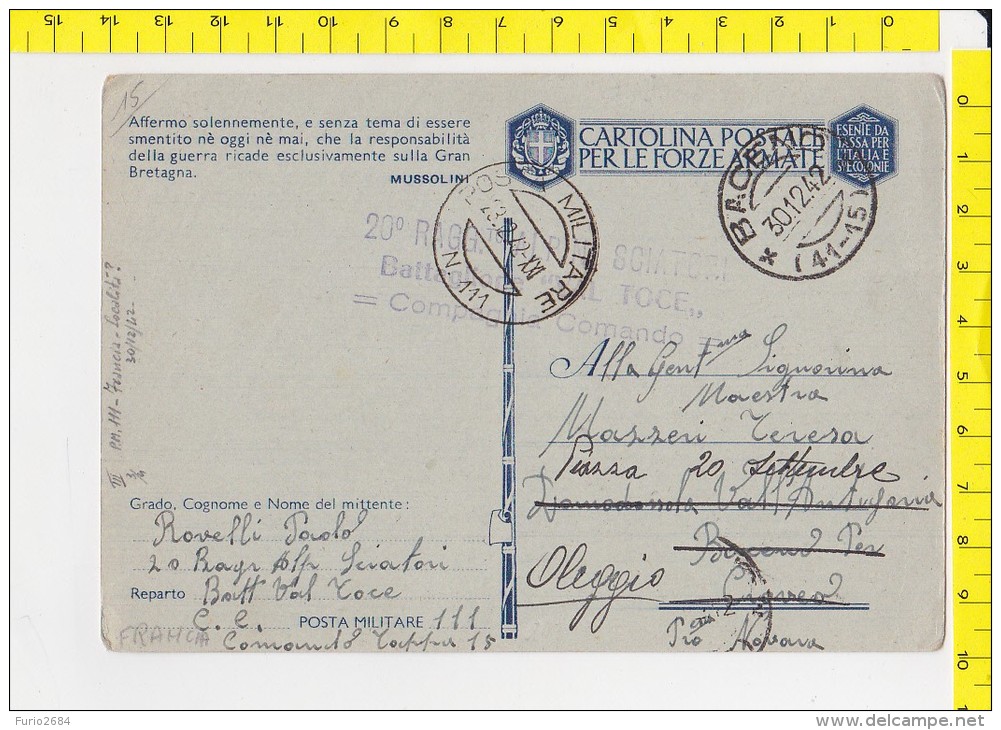 15 14 13 12 11 10 9 8 7 6 5 4 3 2 1 0
0 1 2 3 4 5 6 7 8 9 10
15
Affermo solennemente, e senza tema di essere
smentito nè oggi nè mai, che la responsabilità
della guerra ricade esclusivamente sulla Gran
Bretagna.
MUSSOLINI
CARTOLINA POSTALE
PER LE FORZE ARMATE
ESENTE DA
TASSA PER
L'ITALIA E
S. COLONIE
POSTA MILITARE
23.12.42-XXI
N. 111
BACENO
30.12.42
* (41-15)
20° RAGG.TO ALPINI SCIATORI
Battaglione "VAL TOCE„
= Compagnia Comando =
P.M. 111 - Francia - Località?
30/12/42
III
Alla Gent Signorina
Maestra
Mazzeri Teresa
Piazza 20 Settembre
Domodossola Vall Antigorio
Baceno Per
Oleggio
Craveo
Pro Novara
Grado, Cognome e Nome del mittente:
Rovelli Paolo
20 Ragr Alp Sciatori
Reparto Batt Val Toce
C. C. POSTA MILITARE 111
FRANCIA
Comando Tappa 15
Furio2684
delcampe.net